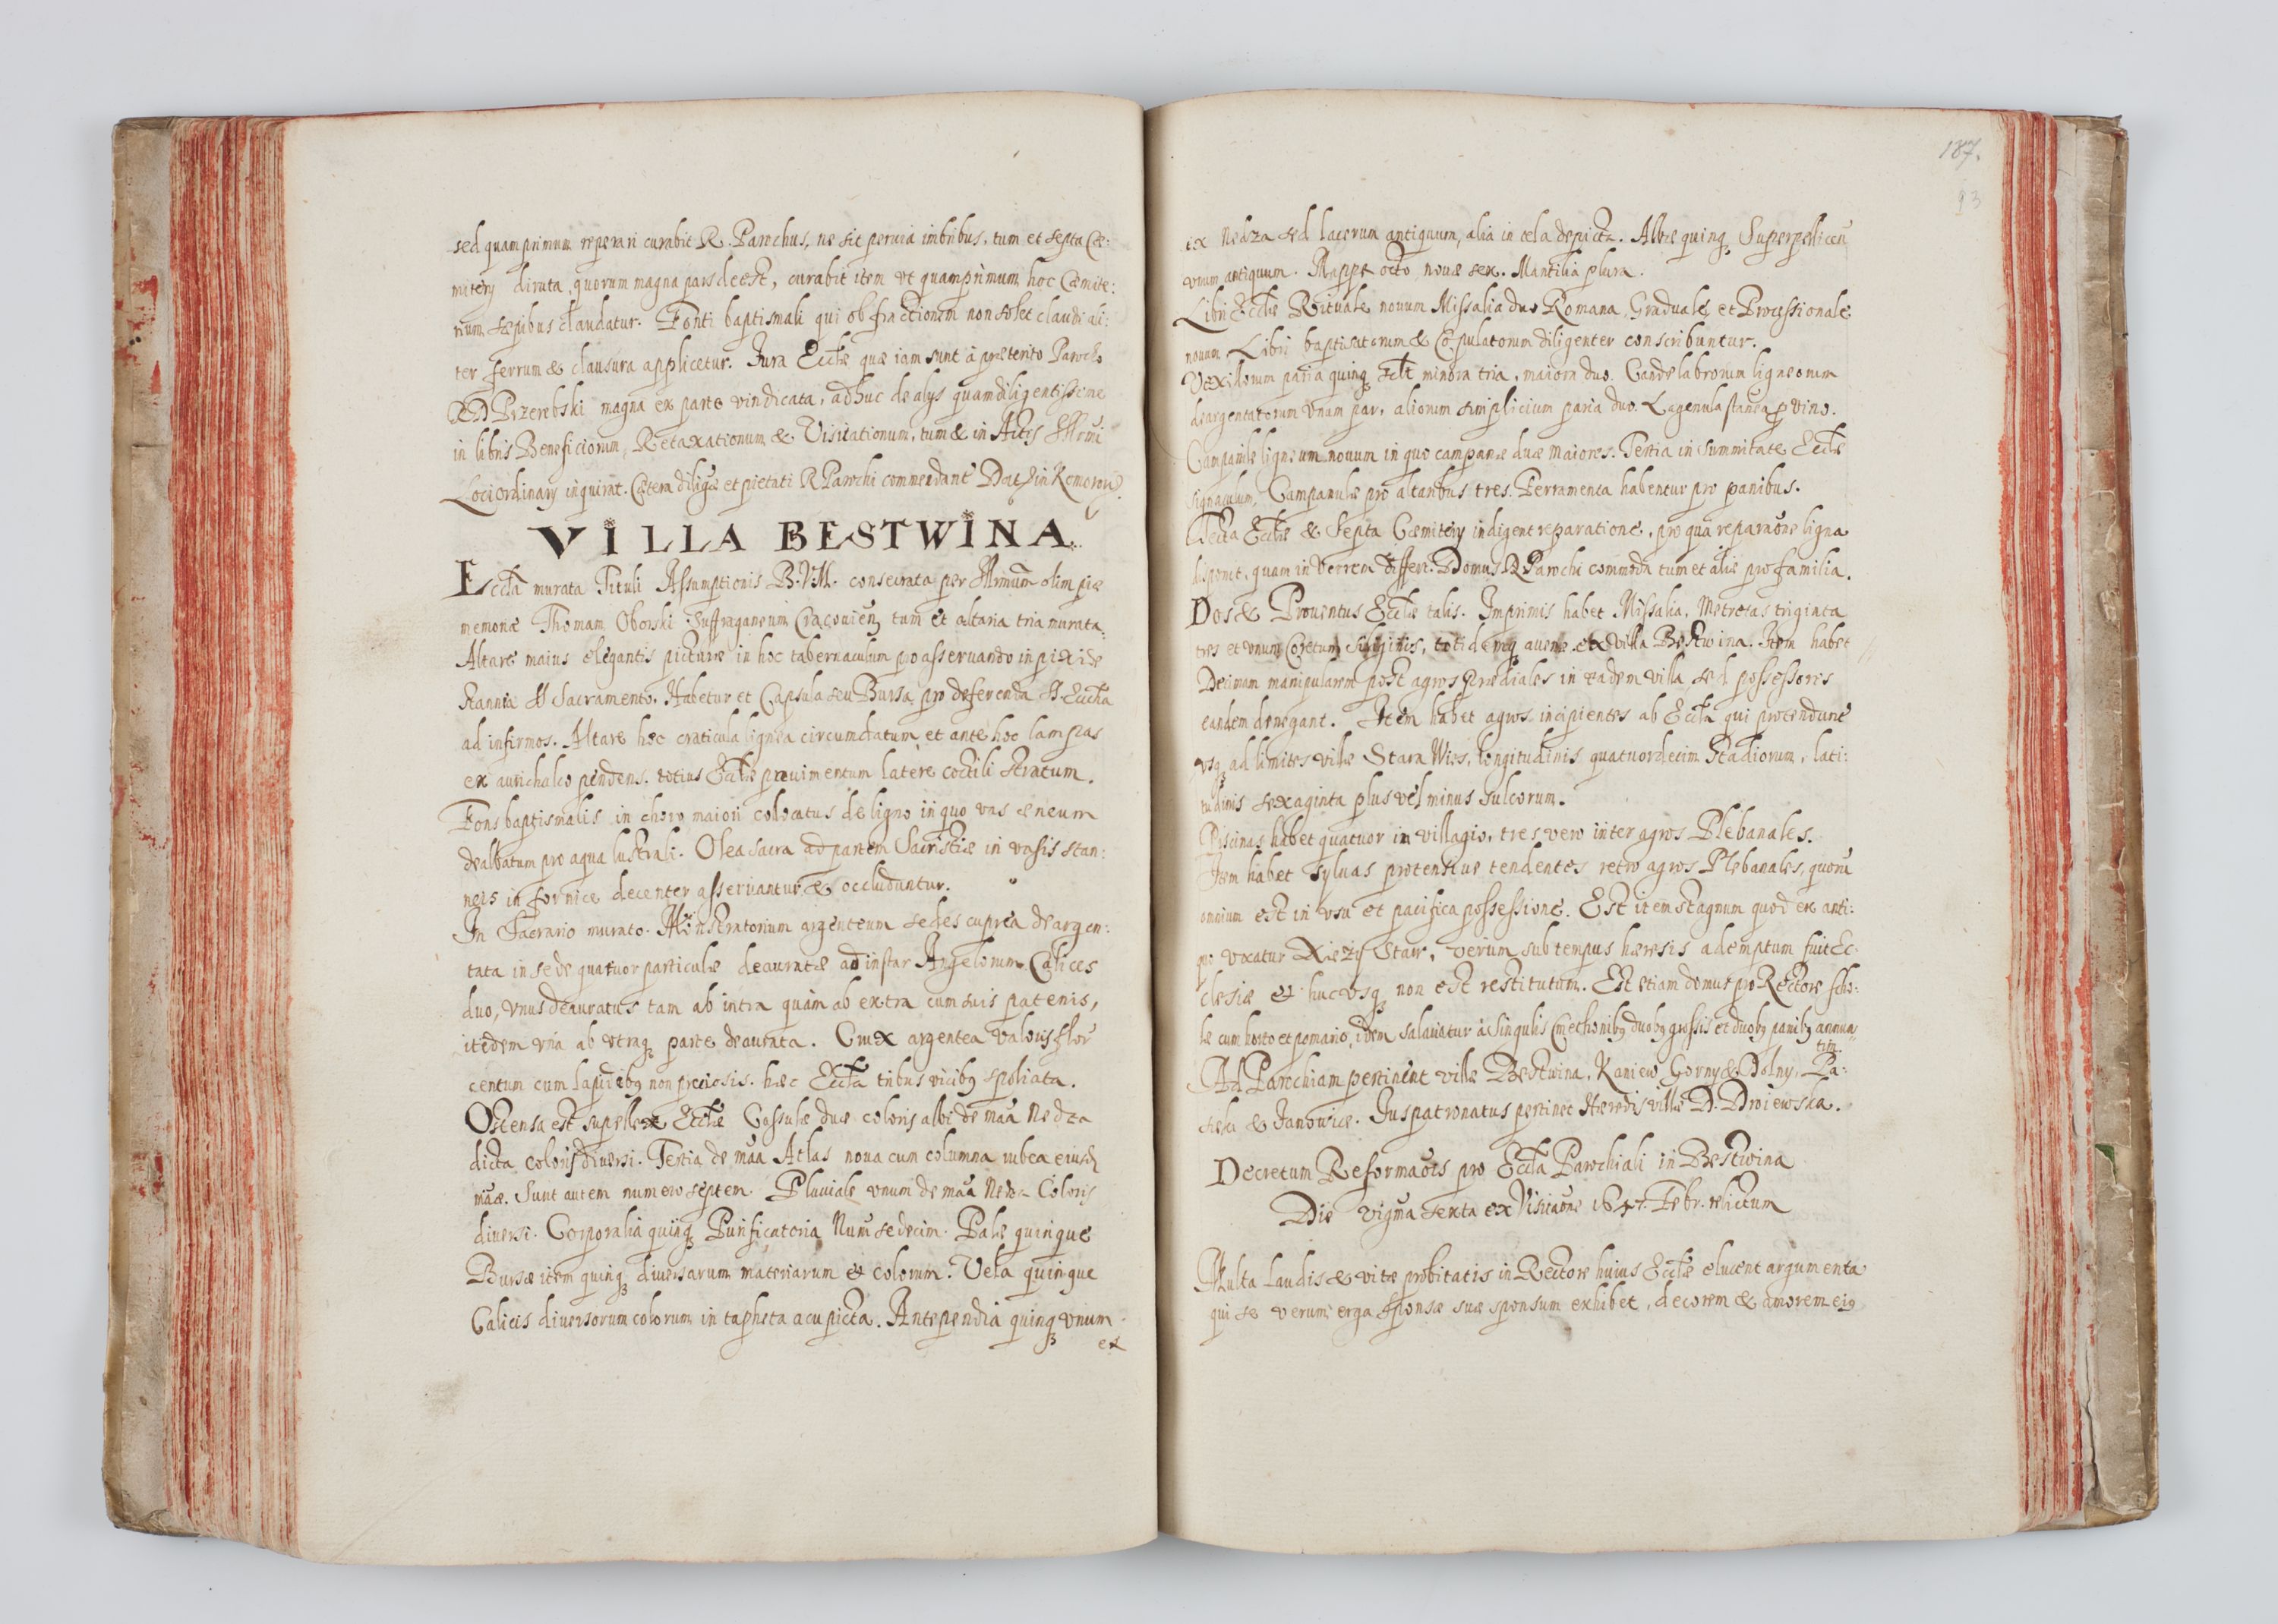 sed quamprimum reperari curabit R. Parochus, ne sit peruia imbribus, tum et septa Cæ:
mitery diruta, quorum magna pars deest, curabit item vt quamprimum hoc Cæmite:
rium sæpibus claudatur. Fonti baptismali qui ob fractionem non solet claudi ali:
ter ferrum & clausura applicetur. Jura Eccłæ quæ iam sunt à præterito Parocho
RD Przerebski magna ex parte vindicata, adhuc de alys quam diligentissime
in libris Beneficiorum, Retaxationum & Visitationum, tum & in Actis Illrmi
Loci ordinary inquirant. Cætera diligæ et pietati R Parochi commendant Dat in Komorow
VILLA BESTWINA
Eccła murata Tituli Assumptionis B.V.M. consecrata per Illrmum olim piæ
memoriæ Thomam Oborski Suffraganeum Cracouień, tum et altaria tria murata.
Altare maius elegantis picturæ in hoc tabernaculum pro asseruando in pixide
stannea SS Sacramento. Habetur et Capsula seu Bursa pro deferenda S. Euctia
ad infirmos. Altare hoc craticula lignea circumdatum, et ante hoc lampas
ex aurichalco pendens. totius Eccłæ pauimentum latere coctili stratum.
Fons baptismalis in choro maiori colocatus de ligno in quo vas æneum
dealbatum pro aqua lustrali. Olea sacra ad partem Sacristiæ in vasis stan:
neis in fornice decenter asseruantur & occluduntur.
In Sacrario murato. Monstratorium argenteum sedes cuprea dearge:
tata in sede quatuor particulæ deauratæ ad instar Angelorum. Calices
duo, vnus deauratus tam ab intra quàm ab extra cum suis patenis,
itedem vna ab vtraq parte deaurata. Crux argentea valoris flor
centum cum lapidibq non preciosis. hæc Eccła tribus vicibq spoliata.
Ostensa est supellex Eccłæ Casulæ duæ coloris albi de maa Nedza
dicta coloris diuersi. Tertia de maa Atlas noua cum columna rubea eiusd
maæ. Sunt autem numero septem Pluuiale vnum de maa Nedza Coloris
diuersi. Corporalia quinq Purificatoria Num sedecim. Palæ quinque
Bursæ item quinq diuersarum materiarum et colorum. Vela quinque
Calicis diuersorum colorum in tapheta acu picta. Antependia quinq vnum
ex
187.
93
ex Nedza sed lacerum antiquum, alia in tela depicta. Albæ quinq Superpelliceū
vnum antiquum. Mappæ octo, nouæ sex. Mantilia plura.
Libri Eccłæ Rituale nouum Missalia duo Romana, Graduale et Processionale
nouum. Libri baptisatorum & Copulatorum diligenter conscribuntur.
Vexillorum paria quinq scłt minora tria, maiora duo. Candelabrorum ligneorum
deargentatorum vnum par, aliorum simplicium paria duo. Lagenula stanea p vino.
Campanile ligneum nouum in quo campanæ duæ maiores. Tertia in summitate Eccłæ
signaculum, Campanulæ pro altaribus tres. Ferramenta habentur pro panibus.
Tecta Eccłæ & Septa Cæmitery indigent reparatione, pro qua reparaone ligna
disponit, quam in verrem differt. Domus R Parochi commoda tum et aliæ pro familia.
Dos & Prouentus Eccłæ talis. Imprimis habet Missalia. Metretas triginta
tres et vnum Coretum siliginis, totidemq auenæ ex villa Bestwina. Item habet
Decimam manipularem post agros prædiales in eadem villa, sed possessores
eandem denegant. Item habet agros incipientes ab Eccła qui protendunt
vsq ad limites villæ Stara Wies, longitudinis quatuordecim stadiorum, lati:
tudinis sexaginta plus vel minus sulcorum.
Piscinas habet quatuor in villagio, tres vero inter agros Plebanales.
Item habet syluas protensiue tendentes retro agros Plebanales, quorū
omnium est in vsu et pacifica possessione. Est item stagnum quod ex anti:
quo vocatur Xiezy Staw, verum sub tempus hæresis ademptum fuit Ec:
clesiæ et hucvsq non est restitutum. Est etiam domus pro Rectore scho:
læ cum horto et pomario, idem salariatur à singulis Cmethonibq duobq grossis et duobq panibq annua
tim.
Ad Parochiam pertinent villæ Bestwina, Kaniew Gorny & Dolny, Pa:
sieki & Janowice. Jus patronatus pertinet Hæredis villæ D. Droiewska.
Decretum Reformaois pro Eccła Parochiali in Bestwina
Die vigma sexta ex Visitaone 1647. Febr. relictum
Multa Laudis & vitæ probitatis in Rectore huius Eccłæ elucent argumenta
qui se verum erga sponsæ suæ sponsum exhibet, decorem & amorem eiq